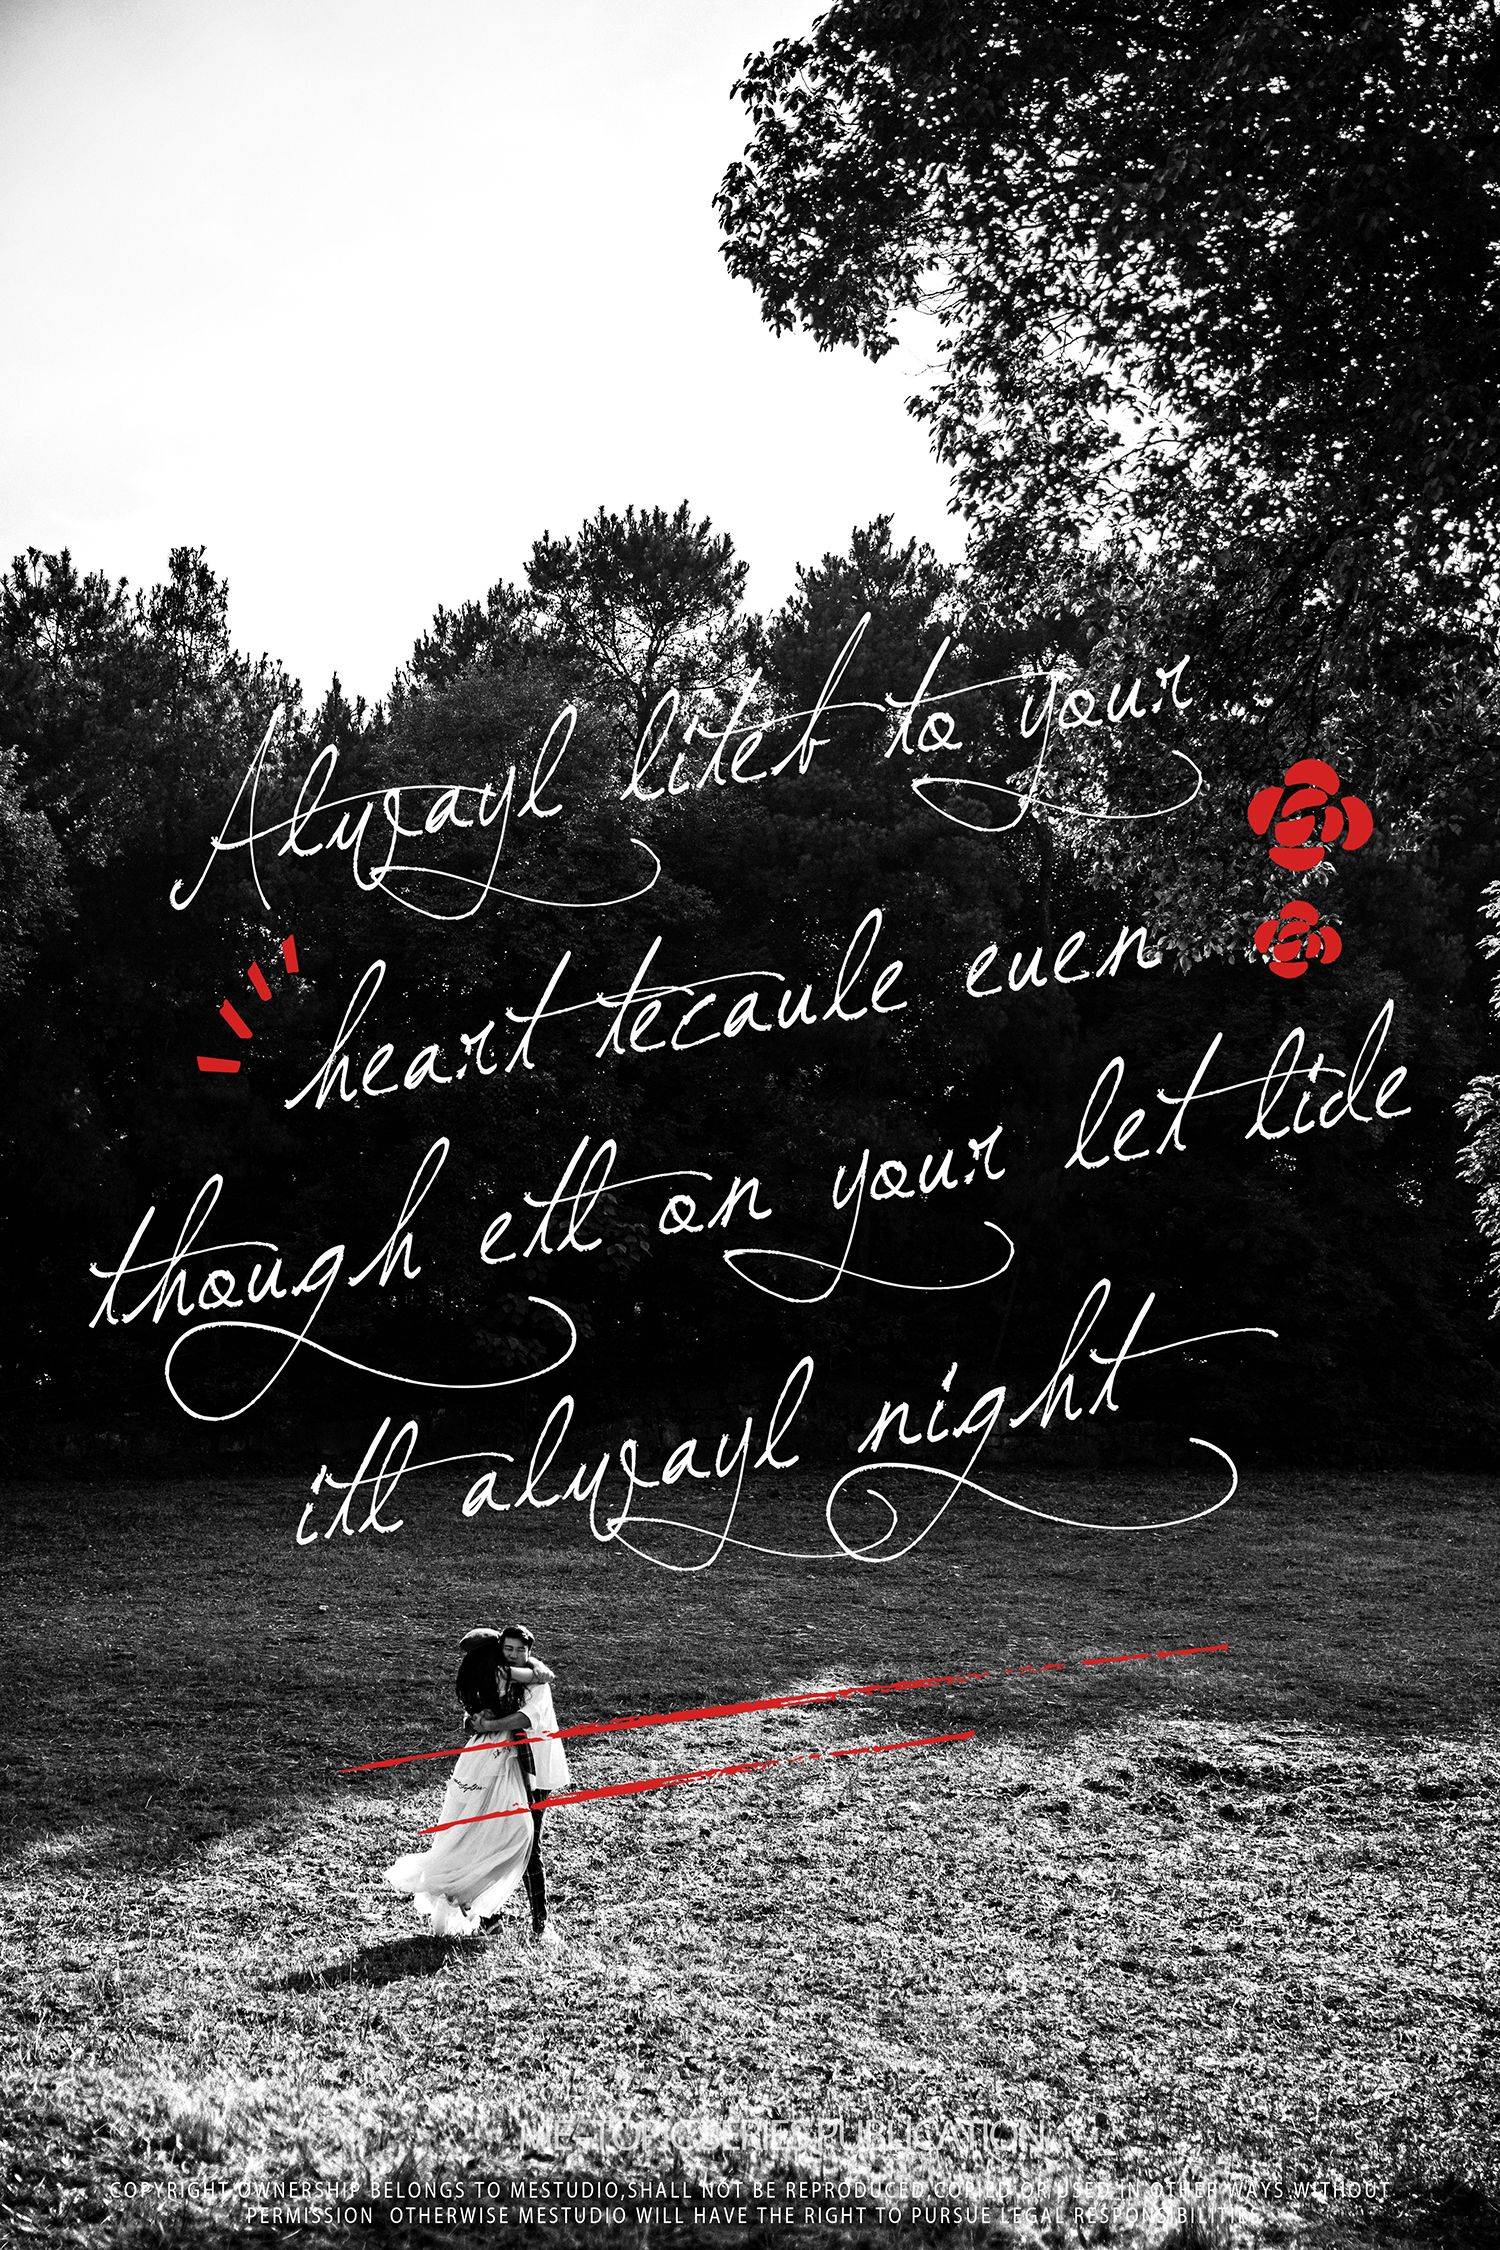 Alwayl liteb to your
heart tecaule euen
though etl on your let tide
itl alwayl night
ME-TOPIC SERIES PUBLICATION
COPYRIGHT OWNERSHIP BELONGS TO MESTUDIO,SHALL NOT BE REPRODUCED COPIED OR USED IN OTHER WAYS WITHOUT
PERMISSION OTHERWISE MESTUDIO WILL HAVE THE RIGHT TO PURSUE LEGAL RESPONSIBILITIES